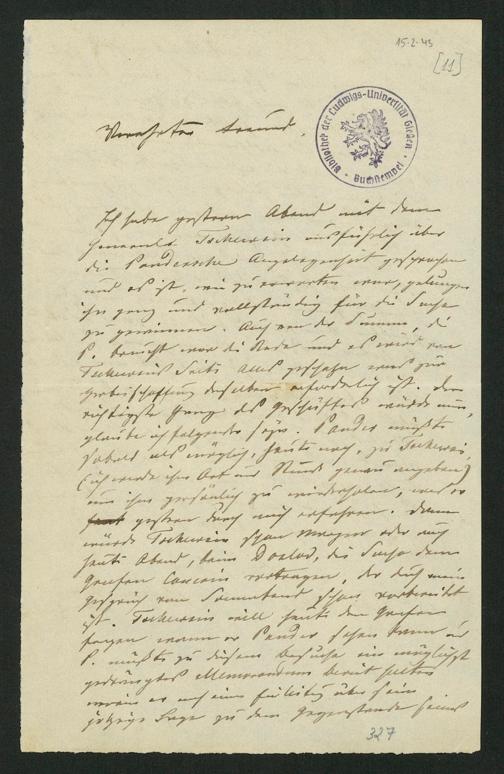 15-2-43
[11]
Bibliothek der Ludwigs-Universität Gießen
Buchstempel
Verehrter Freund.
Ich habe gestern Abend mit dem
Generale Tschewkin ausführlich über
die Pandersche Angelegenheit gesprochen
und es ist, wie zu erwarten war, gelungen
ihn ganz und vollständig für die Sache
zu gewinnen. Auch von der Summe, die
P. braucht war die Rede und es wird von
Tschewkins Seite alles geschehn was zur
Herbeischaffung derselben erforderlich ist. Der
richtigste Gang des Geschäftes würde nun,
glaube ich folgender seyn. Pander müßte
sobald als möglich, heute noch, zu Tschewkin,
(ich werde ihm Ort und Stunde genau angeben)
um ihm persönlich zu wiederholen, was er
gestern durch mich erfahren. Dann
würde Tschewkin schon morgen oder auch
heute Abend, beim die Sache dem
Grafen Cancrin vortragen, der durch mein
Gespräch vom Sonnabend schon vorbereitet
ist. Tschewkin will heute den Grafen
fragen wann er Pander sehen kann und
P. müßte zu diesem Besuche ein möglichst
gedrängtes Memorandum bereit halten
worin er auch eine über sein
jetzige Lage zu dem Gegenstande seines
327